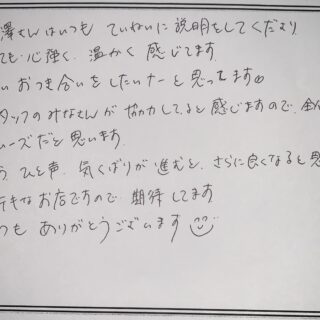 澤さんはいつも ていねいに説明をしてくださり
ても心強く、温かく感じてます。
い おつき合いをしたいナーと思ってます
タッフのみなさんが協力してると感じますので、全
ムーズだと思います。
う ひと声、気くばりが進むと、さらに良くなると思
テキなお店ですので 期待してます
つも ありがとうございます